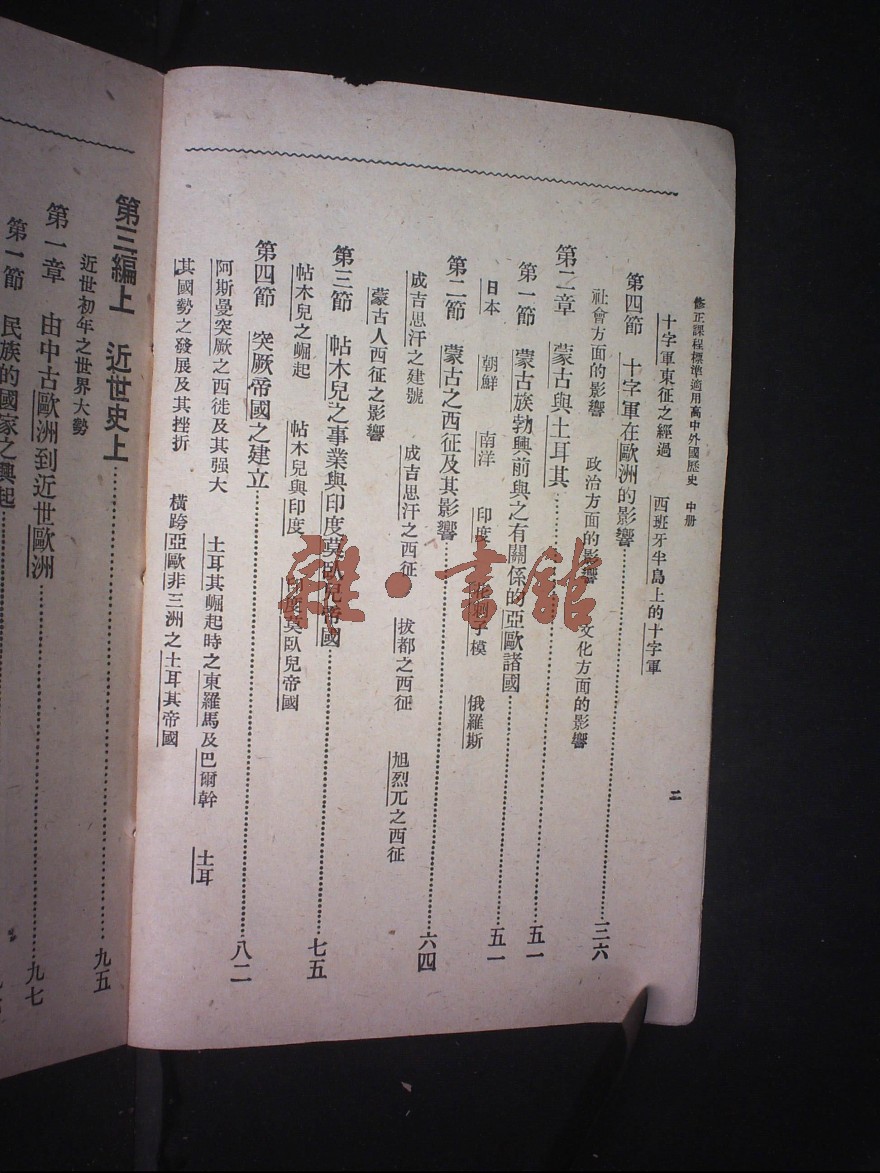 修正課程標準適用高中外國歷史　中册
二
十字軍東征之經過　西班牙半島上的十字軍
第四節　十字軍在歐洲的影響……三六
社會方面的影響　政治方面的影響　文化方面的影響
第二章　蒙古與土耳其……五一
第一節　蒙古族勃興前與之有關係的亞歐諸國……五一
日本　朝鮮　南洋　印度　花剌子模　俄羅斯
第二節　蒙古之西征及其影響……六四
成吉思汗之建號　成吉思汗之西征　拔都之西征　旭烈兀之西征
蒙古人西征之影響
第三節　帖木兒之事業與印度莫臥兒帝國……七五
帖木兒之崛起　帖木兒與印度　印度莫臥兒帝國
第四節　突厥帝國之建立……八二
阿斯曼突厥之西徙及其强大　土耳其崛起時之東羅馬及巴爾幹　土耳
其國勢之發展及其挫折　橫跨亞歐非三洲之土耳其帝國
第三編上　近世史上……九五
近世初年之世界大勢
第一章　由中古歐洲到近世歐洲……九七
第一節　民族的國家之興起……
雜·書館